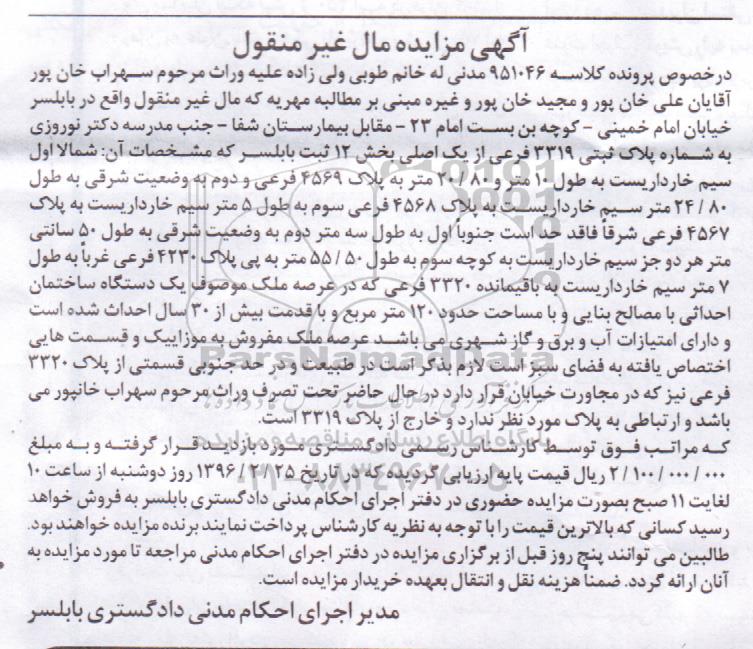 آگهی مزایده مال غیر منقول
درخصوص پرونده کلاسه ۹۵۱۰۴۶ مدنی له خانم طوبی ولی زاده علیه وراث مرحوم سهراب خان پور
آقایان علی خان پور و مجید خان پور و غیره مبنی بر مطالبه مهریه که مال غیر منقول واقع در بابلسر
خیابان امام خمینی - کوچه بن بست امام ۲۳ - مقابل بیمارستان شفا - جنب مدرسه دکتر نوروزی
به شماره پلاک ثبتی ۳۳۱۹ فرعی از یک اصلی بخش ۱۲ ثبت بابلسر که مشخصات آن: شمالا اول
سیم خارداریست به طول ۱۱ متر و ۲۰/۸۱ متر به پلاک ۴۵۶۹ فرعی و دوم به وضعیت شرقی به طول
۲۴/۸۰ متر سیم خارداریست به پلاک ۴۵۶۸ فرعی سوم به طول ۵ متر سیم خارداریست به پلاک
۴۵۶۷ فرعی شرقاً فاقد حد است جنوباً اول به طول سه متر دوم به وضعیت شرقی به طول ۵۰ سانتی
متر هر دو جز سیم خارداریست به کوچه سوم به طول ۵۵/۵۰ متر به پی پلاک ۴۲۳۰ فرعی غرباً به طول
۷ متر سیم خارداریست به باقیمانده ۳۳۲۰ فرعی که در عرصه ملک موصوف یک دستگاه ساختمان
احداثی با مصالح بنایی و با مساحت حدود ۱۲۰ متر مربع و با قدمت بیش از ۳۰ سال احداث شده است
و دارای امتیازات آب و برق و گاز شهری می باشد عرصه ملک مفروش به موزاییک و قسمت هایی
اختصاص یافته به فضای سبز است لازم بذکر است در طبیعت و در حد جنوبی قسمتی از پلاک ۳۳۲۰
فرعی نیز که در مجاورت خیابان قرار دارد در حال حاضر تحت تصرف وراث مرحوم سهراب خانپور می
باشد و ارتباطی به پلاک مورد نظر ندارد و خارج از پلاک ۳۳۱۹ است.
که مراتب فوق توسط کارشناس رسمی دادگستری مورد بازدید قرار گرفته و به مبلغ
۲/۱۰۰/۰۰۰/۰۰۰ ریال قیمت پایه ارزیابی گردیده که در تاریخ ۱۳۹۶/۲/۲۵ روز دوشنبه از ساعت ۱۰
لغایت ۱۱ صبح بصورت مزایده حضوری در دفتر اجرای احکام مدنی دادگستری بابلسر به فروش خواهد
رسید کسانی که بالاترین قیمت را با توجه به نظریه کارشناس پرداخت نمایند برنده مزایده خواهند بود.
طالبین می توانند پنج روز قبل از برگزاری مزایده در دفتر اجرای احکام مدنی مراجعه تا مورد مزایده به
آنان ارائه گردد. ضمناً هزینه نقل و انتقال بعهده خریدار مزایده است.
مدیر اجرای احکام مدنی دادگستری بابلسر
ParsNamadData
پایگاه اطلاع رسانی مناقصه و مزایده
۰۲۱-۸۸۳۴۹۶۷۰-۵